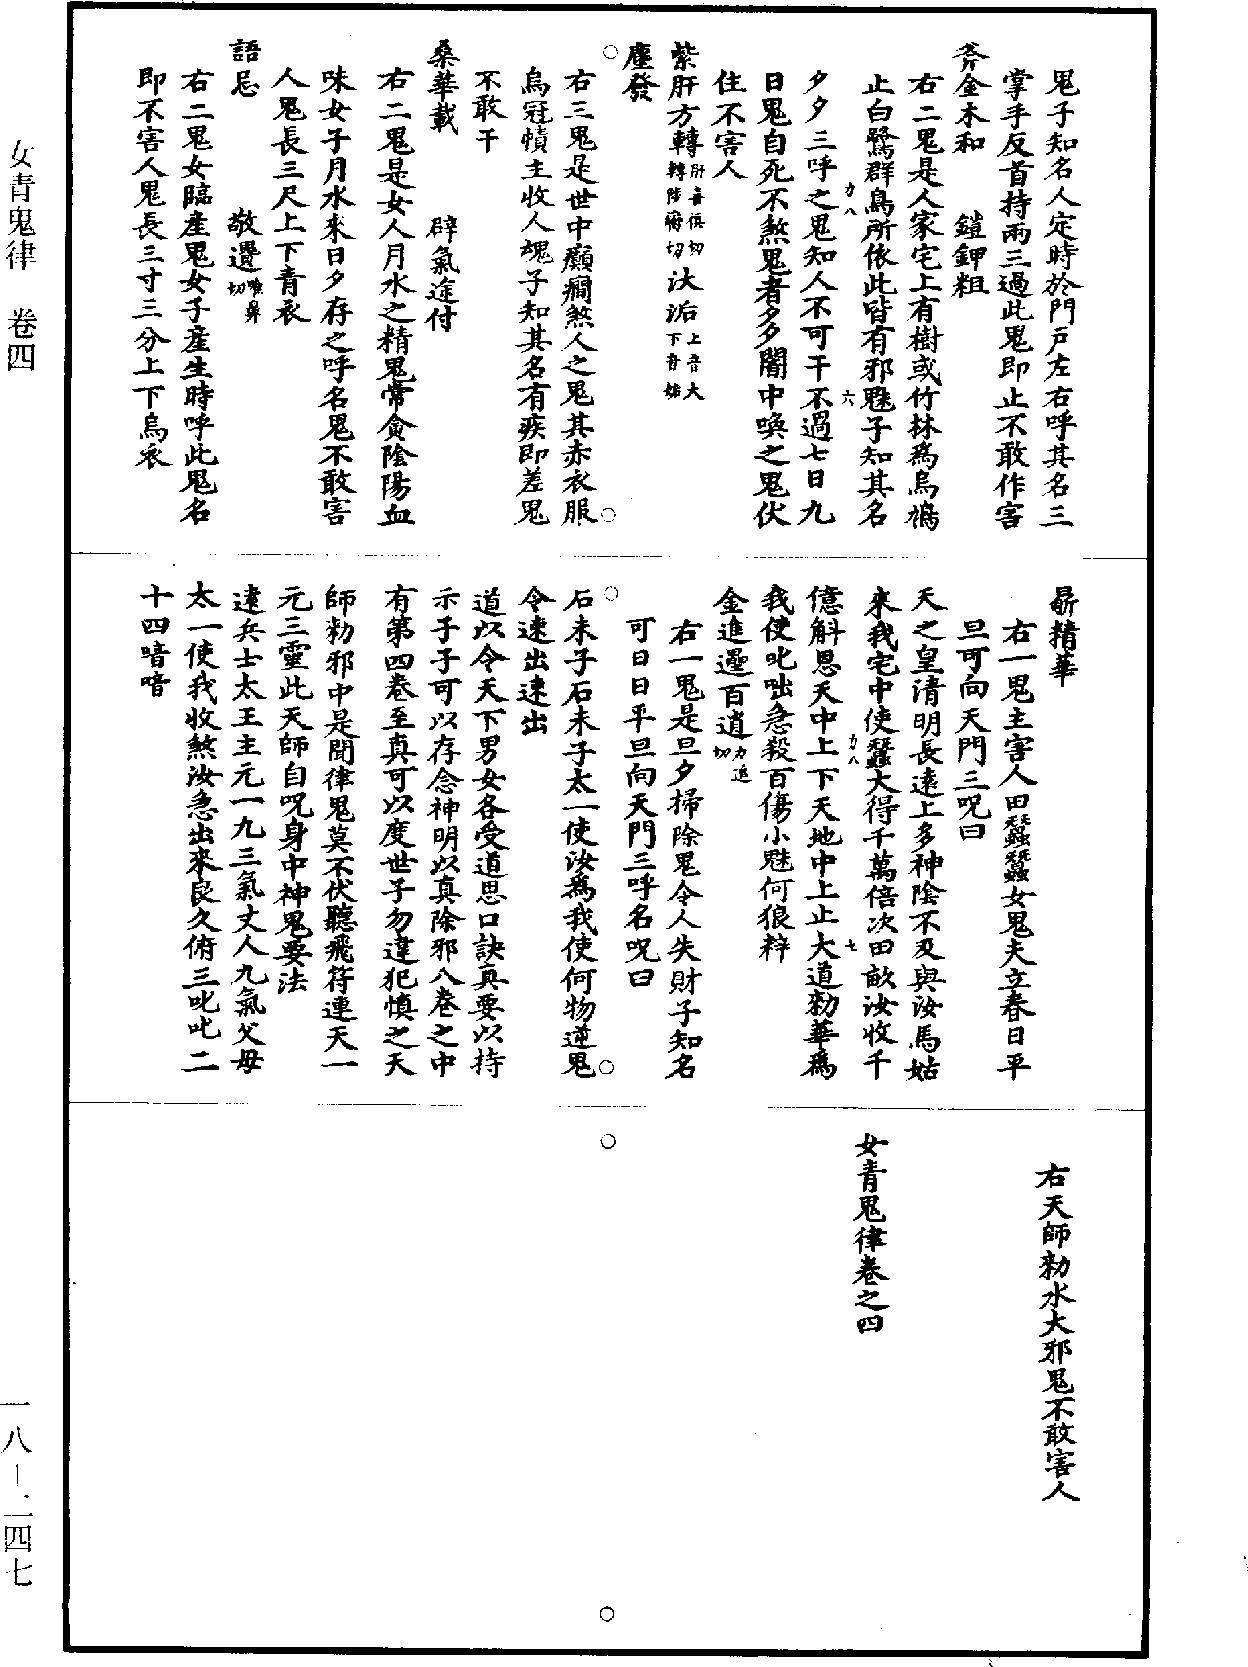 鬼子知名人定時於門戶左右呼其名三
掌手反首持兩三過此鬼即止不敢作害
斧金木和　鎧鉀粗
右二鬼是人家宅上有樹或竹林爲烏鵶
止白鷺群鳥所依此皆有邪魅子知其名
夕夕三呼之鬼知人不可干不過七日九
日鬼自死不煞鬼者多夕闇中喚之鬼伏
住不害人
紫肝方轉 汏洉 上音大下音姤
塵發
右三鬼是世中癲癇煞人之鬼其赤衣服
烏冠幘主收人魂子知其名有疾即差鬼
不敢干
桑華載　辟氣逄付
右二鬼是女人月水之精鬼常貪陰陽血
味女子月水來日夕存之呼名鬼不敢害
人鬼長三尺上下青衣
語忌　敬遷
右二鬼女臨產鬼女子產生時呼此鬼名
即不害人鬼長三寸三分上下烏衣
精華
右一鬼主害人田蠶蠶女鬼夫立春日平
旦可向天門三呪曰
天之皇清明長遠上多神陰不及與汝馬姑
來我宅中使蠶大得千萬倍次田畝汝收千
億斛恩天中上下天地中上止大道勑華爲
我使叱咄急殺百傷小魅何狼粹
金進邅百逍
右一鬼是旦夕掃除鬼令人失財子知名
可日日平旦向天門三呼名呪曰
石未子石未子太一使汝爲我使何物逆鬼
令速出速出
道以令天下男女各受道思口訣真要以持
示子子可以存念神明以真除邪八卷之中
有第四卷至真可以度世子勿違犯慎之天
師勑邪中是聞律鬼莫不伏聽飛符連天一
元三靈此天師自呪身中神鬼要法
逮兵士太王主元一九三氣丈人九氣父母
太一使我收煞汝急出來良久俯三叱叱二
十四喑喑
右天師勑水大邪鬼不敢害人
女青鬼律卷之四
力八
六
力八
七
女青鬼律　卷四
一八–二四七